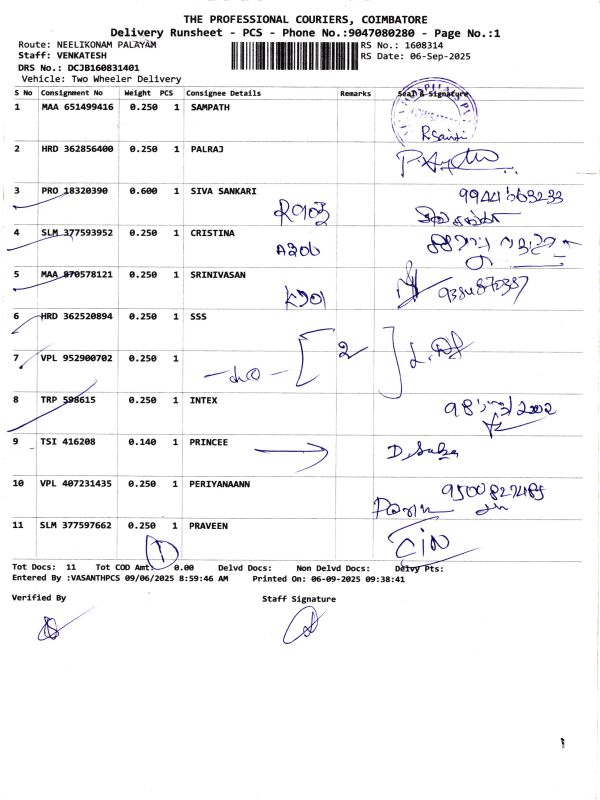 THE PROFESSIONAL COURIERS, COIMBATORE
Delivery Runsheet - PCS - Phone No.:9047080280 - Page No.:1
Route: NEELIKONAM PALAYAM
RS No.: 1608314
Staff: VENKATESH
RS Date: 06-Sep-2025
DRS No.: DCJB160831401
Vehicle: Two Wheeler Delivery
S No Consignment No Weight PCS Consignee Details Remarks Seal & Signature
1 MAA 651499416 0.250 1 SAMPATH
2 HRD 362856400 0.250 1 PALRAJ
3 PRO 18320390 0.600 1 SIVA SANKARI
4 SLM 377593952 0.250 1 CRISTINA
A206
5 MAA 870578121 0.250 1 SRINIVASAN
9384870387
6 HRD 362520894 0.250 1 SSS
7 VPL 952900702 0.250 1
2
8 TRP 598615 0.250 1 INTEX
9 TSI 416208 0.140 1 PRINCEE
10 VPL 407231435 0.250 1 PERIYANAANN
9500827485
11 SLM 377597662 0.250 1 PRAVEEN
1
Tot Docs: 11 Tot COD Amt: 0.00 Delvd Docs: Non Delvd Docs: Delvy Pts:
Entered By :VASANTHPCS 09/06/2025 8:59:46 AM Printed On: 06-09-2025 09:38:41
Verified By Staff Signature